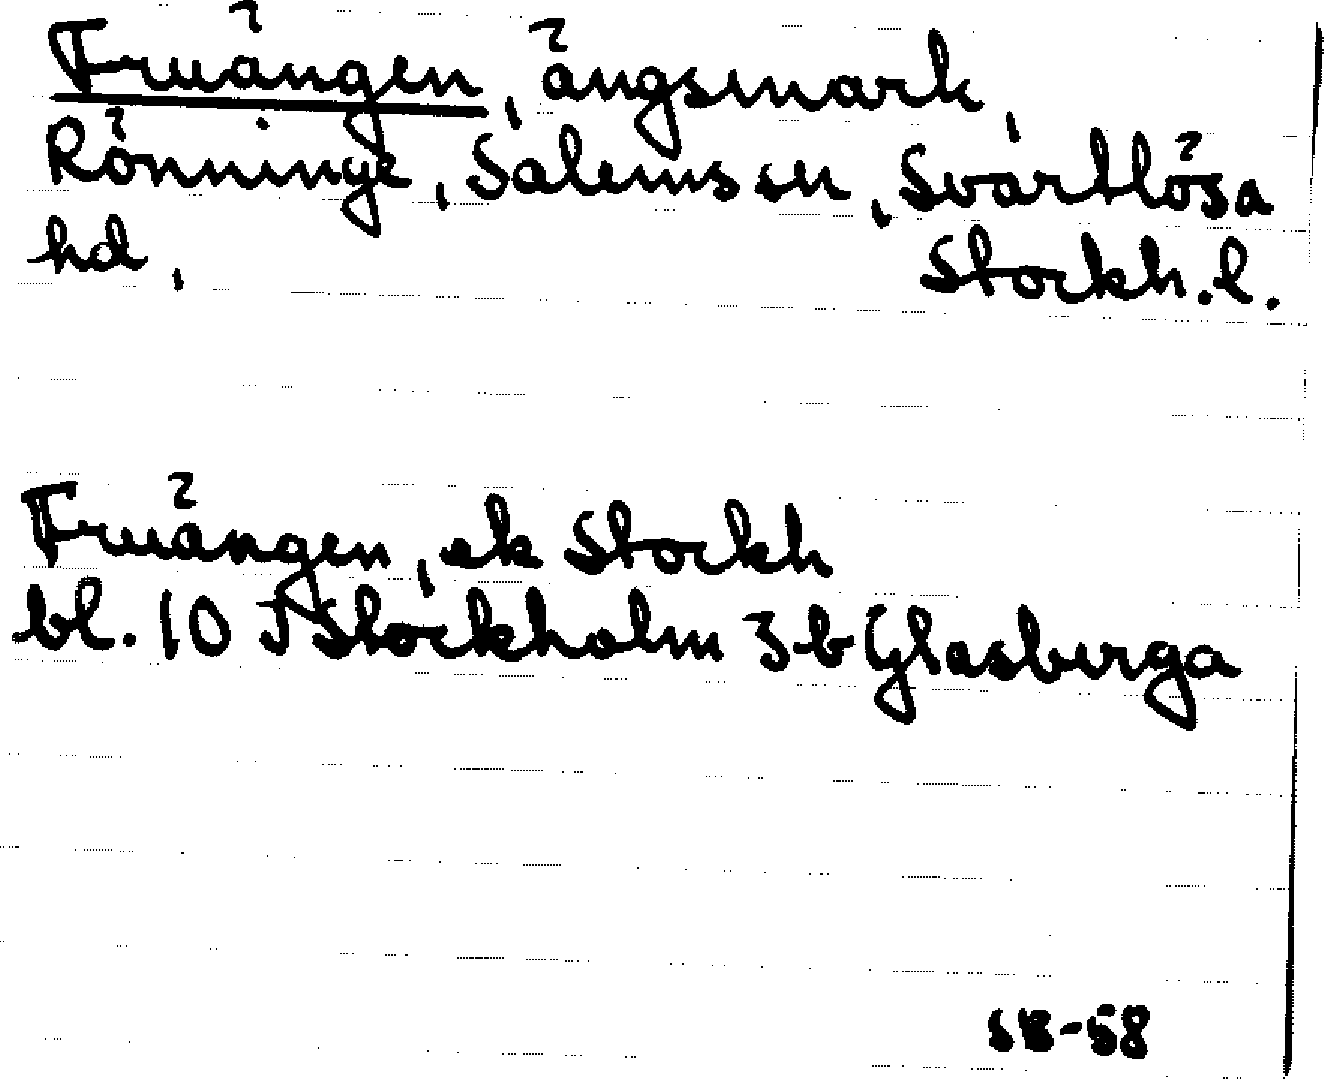 Fruängen, ängsmark,
Rönninge, Salems sn, Svartlösa
hd, Stockh. l.
Fruängen, ek Stockh
bl. 10 J Stockholm 3b Glasberga